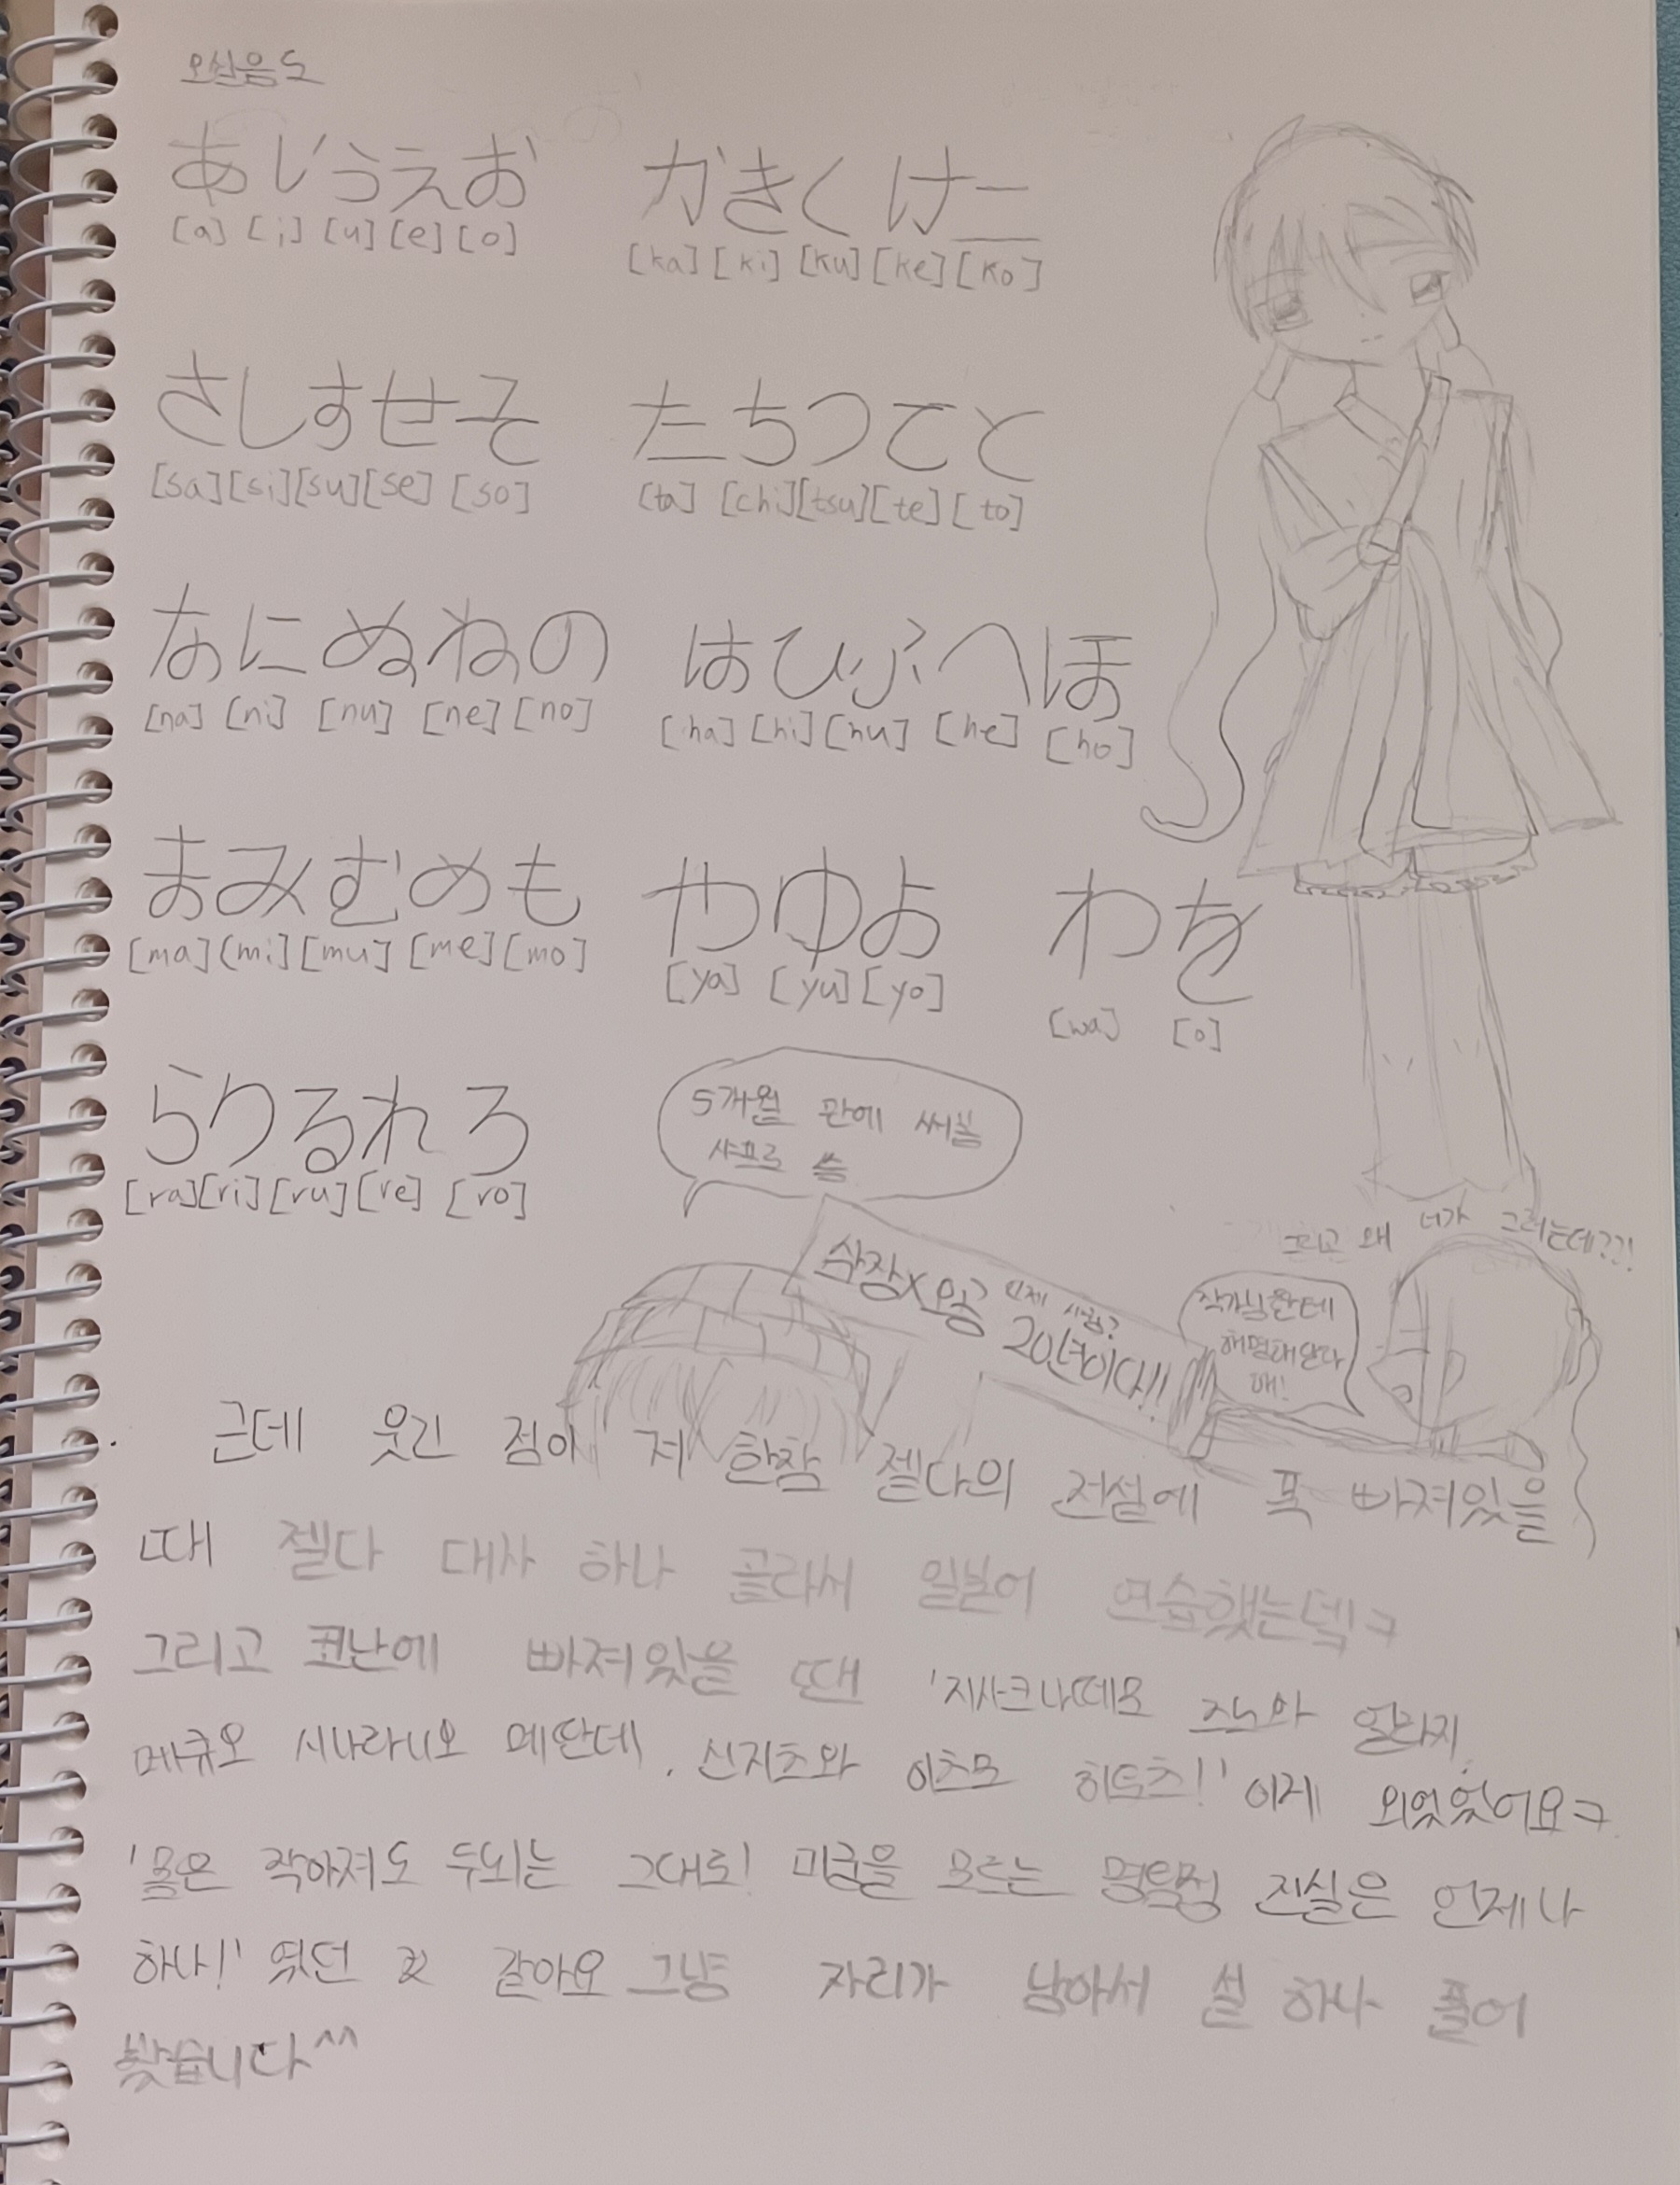 오십음도
あいうえお かきくけこ
[a] [i] [u] [e] [o] [ka] [ki] [ku] [ke] [ko]
さしすせそ たちつてと
[sa] [si] [su] [se] [so] [ta] [chi] [tsu] [te] [to]
なにぬねの はひふへほ
[na] [ni] [nu] [ne] [no] [ha] [hi] [hu] [he] [ho]
まみむめも やゆよ わを
[ma] (mi] [mu] [me] [mo] [ya] [yu] [yo] [wa] [o]
らりるれろ
[ra] [ri] [ru] [re] [ro]
5개월 만에 써봄
샤프로 씀
수장x용공 20년이다!!
언제 사귐?
그리고 왜 너가 그러는데??!
작가님한테
해명해왔다
매!
근데 웃긴 점이 저 한참 젤다의 전설에 푹 빠져있을
때 젤다 대사 하나 골라서 일본어 연습했는덱ㅋ
그리고 코난에 빠져있을 땐 '지사크나떼모 즈노와 오나지,
메큐오 시나라니오 메딴데, 신지츠와 이츠모 히토츠!' 이게 외웠었어요ㅋ
'몸은 작아져도 두뇌는 그대로! 미궁을 모르는 명탐정 진실은 언제나
하나!' 였던 것 같아요 그냥 자리가 남아서 썰 하나 풀어
봤습니다^^